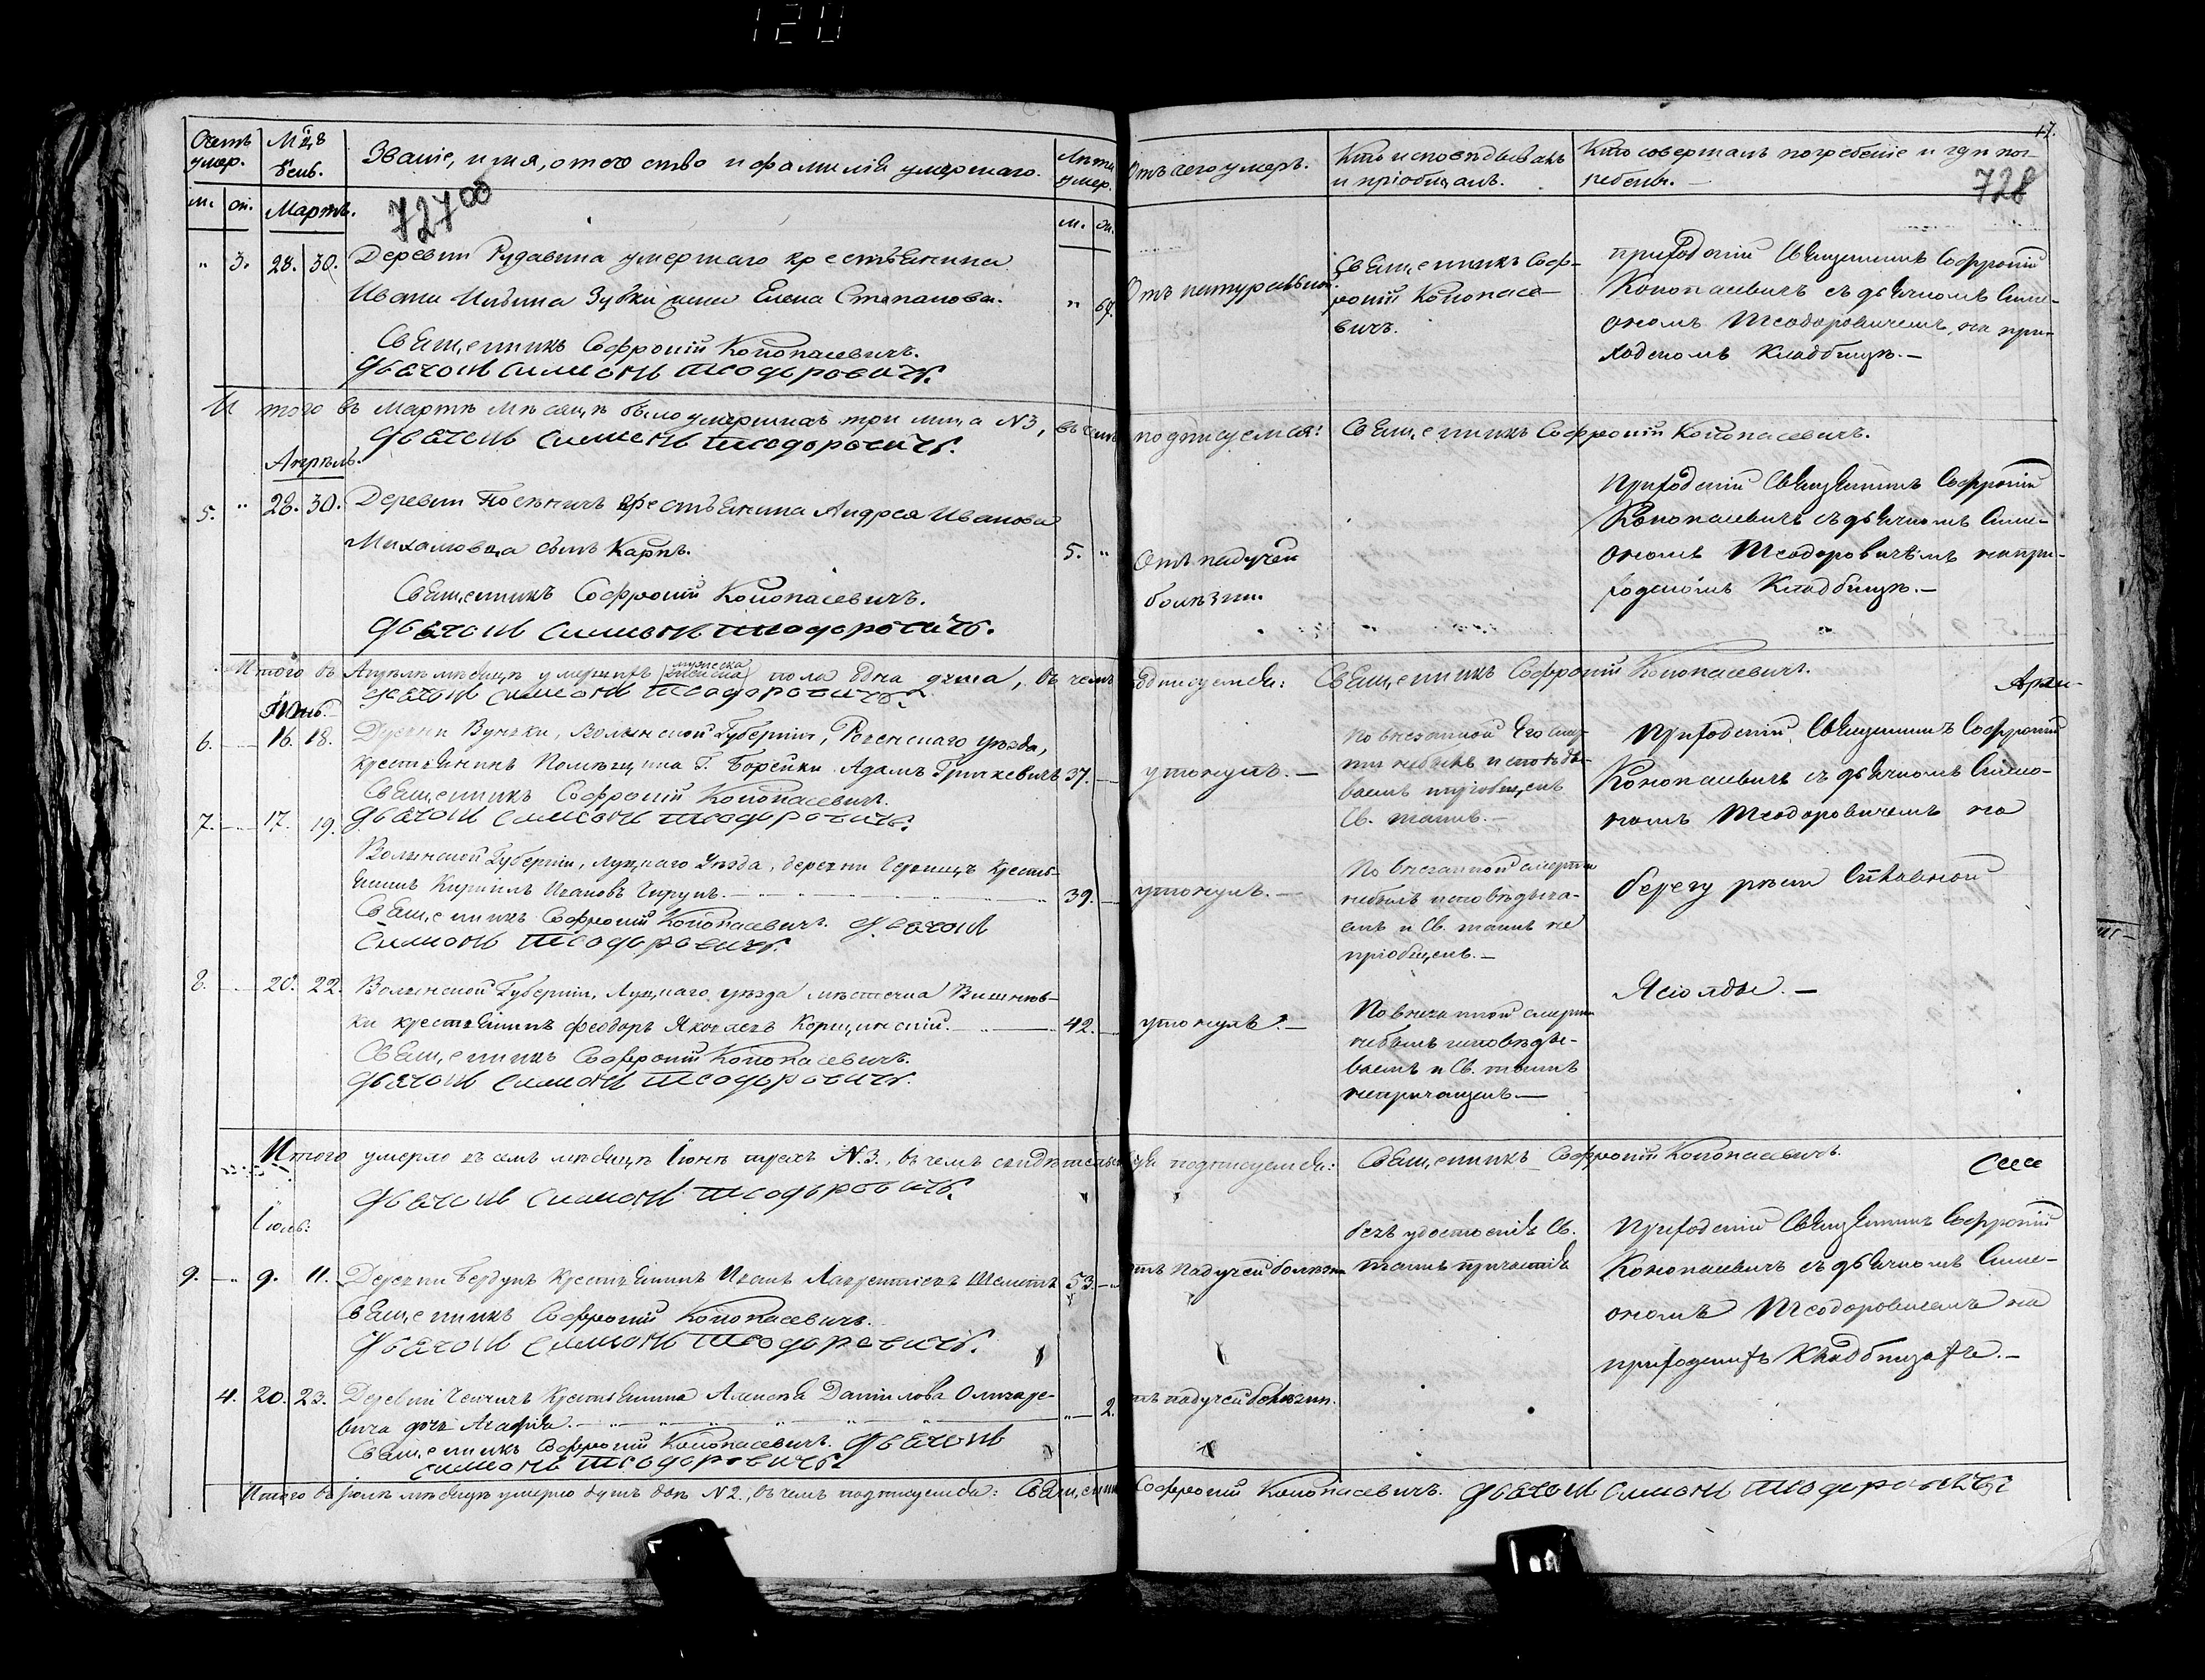 120
17.
Счетъ умер.
Мѣц. день.
Званіе, имя, отечество и фамилія умершаго.
Лѣта умер.
Отъ чего умеръ.
Кто исповѣдывалъ и пріобщалъ.
Кто совершалъ погребеніе и гдѣ погребены.
м. ж.
Мартъ.
727об
м. ж.
728
" 3. 28. 30. Деревни Рудавина умершаго крестьянина
Ивана Ильина Зубки жена Елена Степанова. " 67.
Священникъ Софроній Конопасевичъ.
Дьячокъ Симеонъ Теодоровичъ.
Отъ натуральной.
Священникъ Соф-
роній Конопасе-
вичъ.
приходскій Священникъ Софроній
Конопасевичъ съ дьячкомъ Симе-
ономъ Теодоровичемъ на при-
ходскомъ кладбищѣ.—
Итого въ Мартѣ мѣсяцѣ было умершихъ три лица №3, въ чемъ подписуемся: Священникъ Софроній Конопасевичъ.
Дьячокъ Симеонъ Теодоровичъ.
Апрѣль.
5. " 28. 30. Деревни крестьянина Андрея Иванова
Михаловца сынъ Карпъ. 5. "
Священникъ Софроній Конопасевичъ.
Дьячокъ Симеонъ Теодоровичъ.
Отъ падучей
болѣзни.
Приходскій Священникъ Софроній
Конопасевичъ съ дьячкомъ Симе-
ономъ Теодоровичемъ на при-
ходскомъ кладбищѣ.—
Итого въ Апрѣлѣ мѣсяцѣ умершихъ мужеска пола одна душа, въ чемъ подписуемся: Священникъ Софроній Конопасевичъ.
Дьячокъ Симеонъ Теодоровичъ.
Іюнь.
6. — 16. 18. Деревни Волынской Губерніи, Ровенскаго уѣзда,
крестьянинъ Помѣщика Г. Борейки Адамъ Гринкевичъ 37. —
Священникъ Софроній Конопасевичъ.
Дьячокъ Симеонъ Теодоровичъ.
утонулъ.—
По внезапной его смер-
ти небылъ исповѣды-
ваемъ
Св. таинъ.—
Приходскій Священникъ Софроній
Конопасевичъ съ дьячкомъ Симео-
номъ Теодоровичемъ на
берегу рѣки
Ясіолды.—
7. — 17. 19.
Волынской Губерніи, Луцкаго Уѣзда, деревни кресть-
янинъ Кириллъ Ивановъ 39. —
Священникъ Софроній Конопасевичъ. Дьячокъ
Симеонъ Теодоровичъ.
утонулъ.—
По внезапной смерти
небылъ исповѣдыва-
емъ и Св. таинъ не
пріобщенъ.—
8. — 20. 22. Волынской Губерніи, Луцкаго уѣзда мѣстечка Вишнев-
ки крестьянинъ Феодоръ Яковлевъ Корщинскій. 42. —
Священникъ Софроній Конопасевичъ.
Дьячокъ Симеонъ Теодоровичъ.
утонулъ.—
По внезапной смерти
небылъ исповѣды-
ваемъ и Св. таинъ
непричащенъ.—
Итого умерло въ семъ мѣсяцѣ Іюнѣ трехъ №3., въ чемъ подписуемся: Священникъ Софроній Конопасевичъ.
Дьячокъ Симеонъ Теодоровичъ.
Іюль.
9. — 9. 11. Деревни крестьянинъ Иванъ Лаврентіевъ 53. —
Священникъ Софроній Конопасевичъ.
Дьячокъ Симеонъ Теодоровичъ.
отъ падучей болѣзни
безъ удостоенія Св.
таинъ причастія
Приходскій Священникъ Софроній
Конопасевичъ съ дьячкомъ Симе-
ономъ Теодоровичемъ на
приходскихъ кладбищахъ.—
4. 20. 23. Деревни крестьянина Алексѣя Данилова
вича дочь Агафія. " 2.
Священникъ Софроній Конопасевичъ. Дьячокъ
Симеонъ Теодоровичъ.
отъ падучей болѣзни.
Итого въ Іюлѣ мѣсяцѣ умерло душъ двѣ №2., въ чемъ подписуемся: Священникъ Софроній Конопасевичъ. Дьячокъ Симеонъ Теодоровичъ